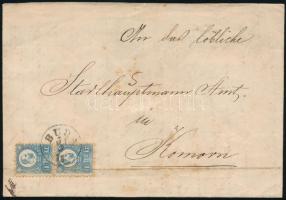 An das löbliche
Stadthauptmann Amt,
in
Komorn
BUDA